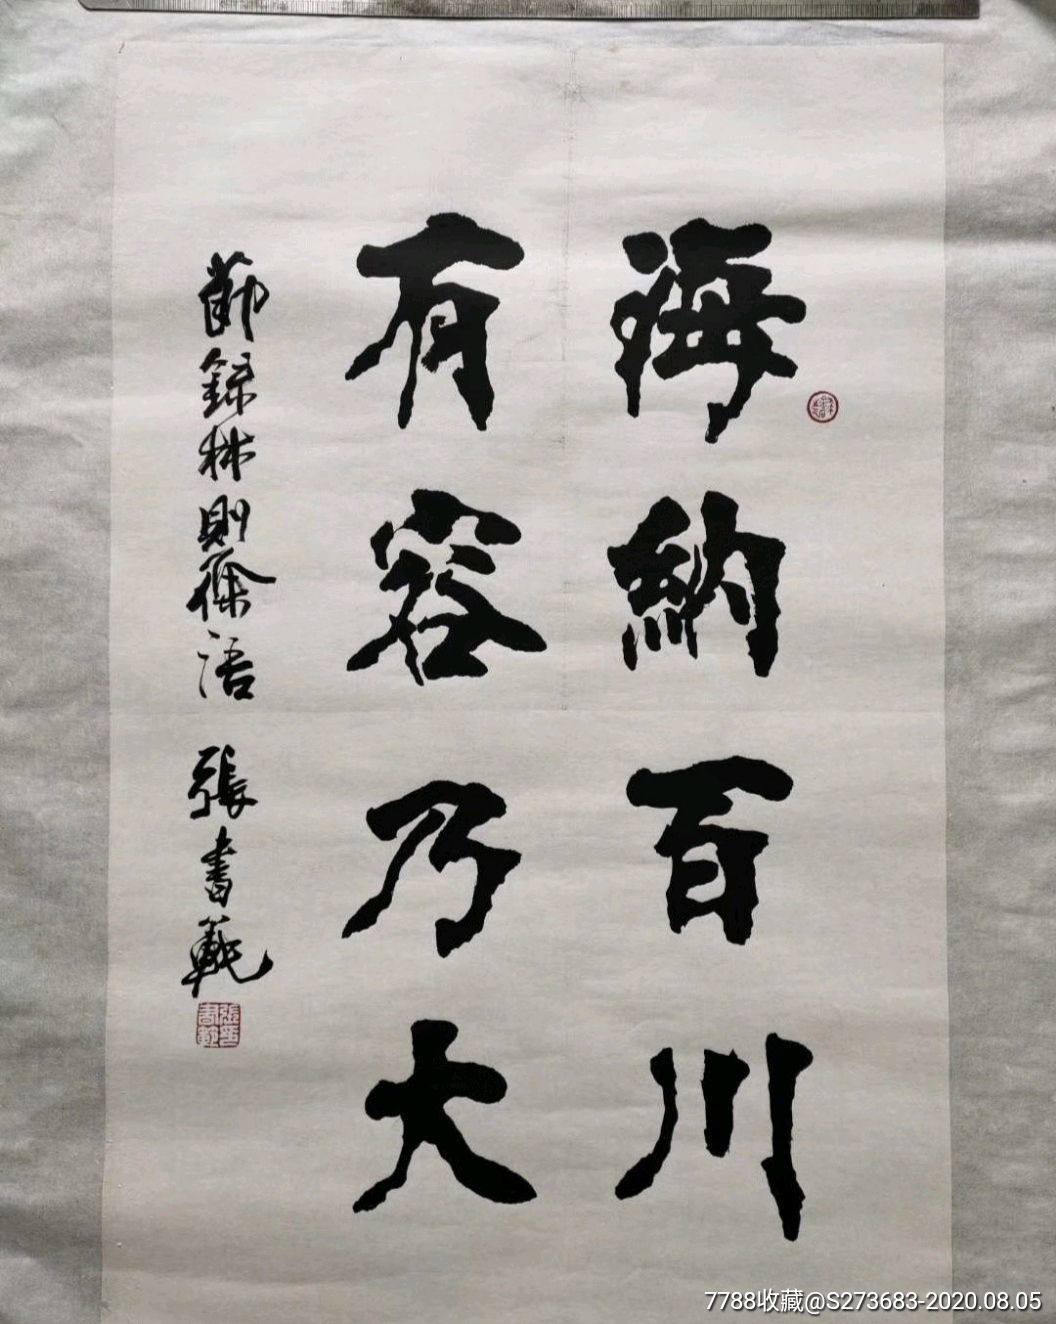 海納百川
有容乃大
節録林則徐語 張書範
張書範印
7788收藏@S273683-2020.08.05